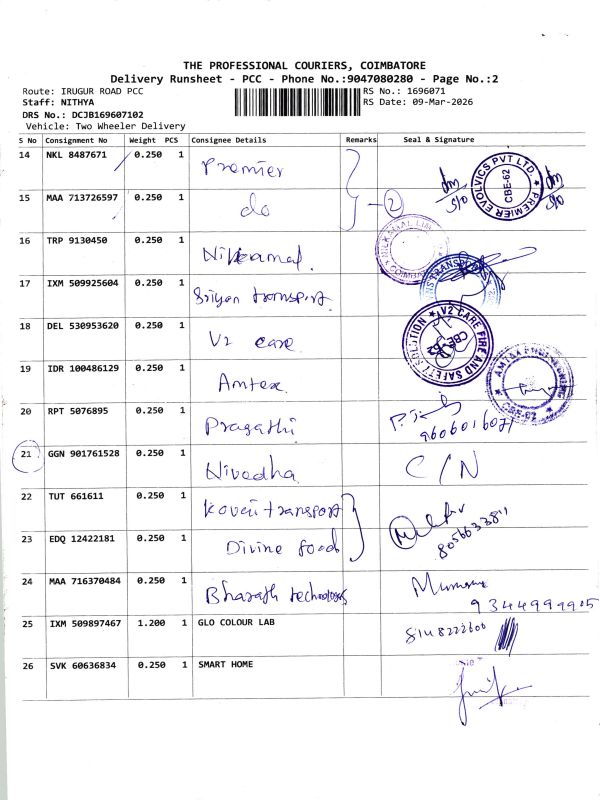 THE PROFESSIONAL COURIERS, COIMBATORE
Delivery Runsheet - PCC - Phone No.:9047080280 - Page No.:2
Route: IRUGUR ROAD PCC
RS No.: 1696071
Staff: NITHYA
RS Date: 09-Mar-2026
DRS No.: DCJB169607102
Vehicle: Two Wheeler Delivery
S No Consignment No Weight PCS Consignee Details Remarks Seal & Signature
14 NKL 8487671 0.250 1 Premier
PREMIER EVOLVICS PVT LTD CBE-62
15 MAA 713726597 0.250 1 do 2
16 TRP 9130450 0.250 1 Nilkamal
17 IXM 509925604 0.250 1 Sriyan transport
18 DEL 530953620 0.250 1 V2 care
V2 CARE FIRE AND SAFETY SOLUTION CBE-62
19 IDR 100486129 0.250 1 Amtex
CBE-62
20 RPT 5076895 0.250 1 Pragathi
21 GGN 901761528 0.250 1 Nivedha C/N
22 TUT 661611 0.250 1 Kovai transport
23 EDQ 12422181 0.250 1 Divine food
24 MAA 716370484 0.250 1 Bharath technologies
9344999905
25 IXM 509897467 1.200 1 GLO COLOUR LAB
26 SVK 60636834 0.250 1 SMART HOME